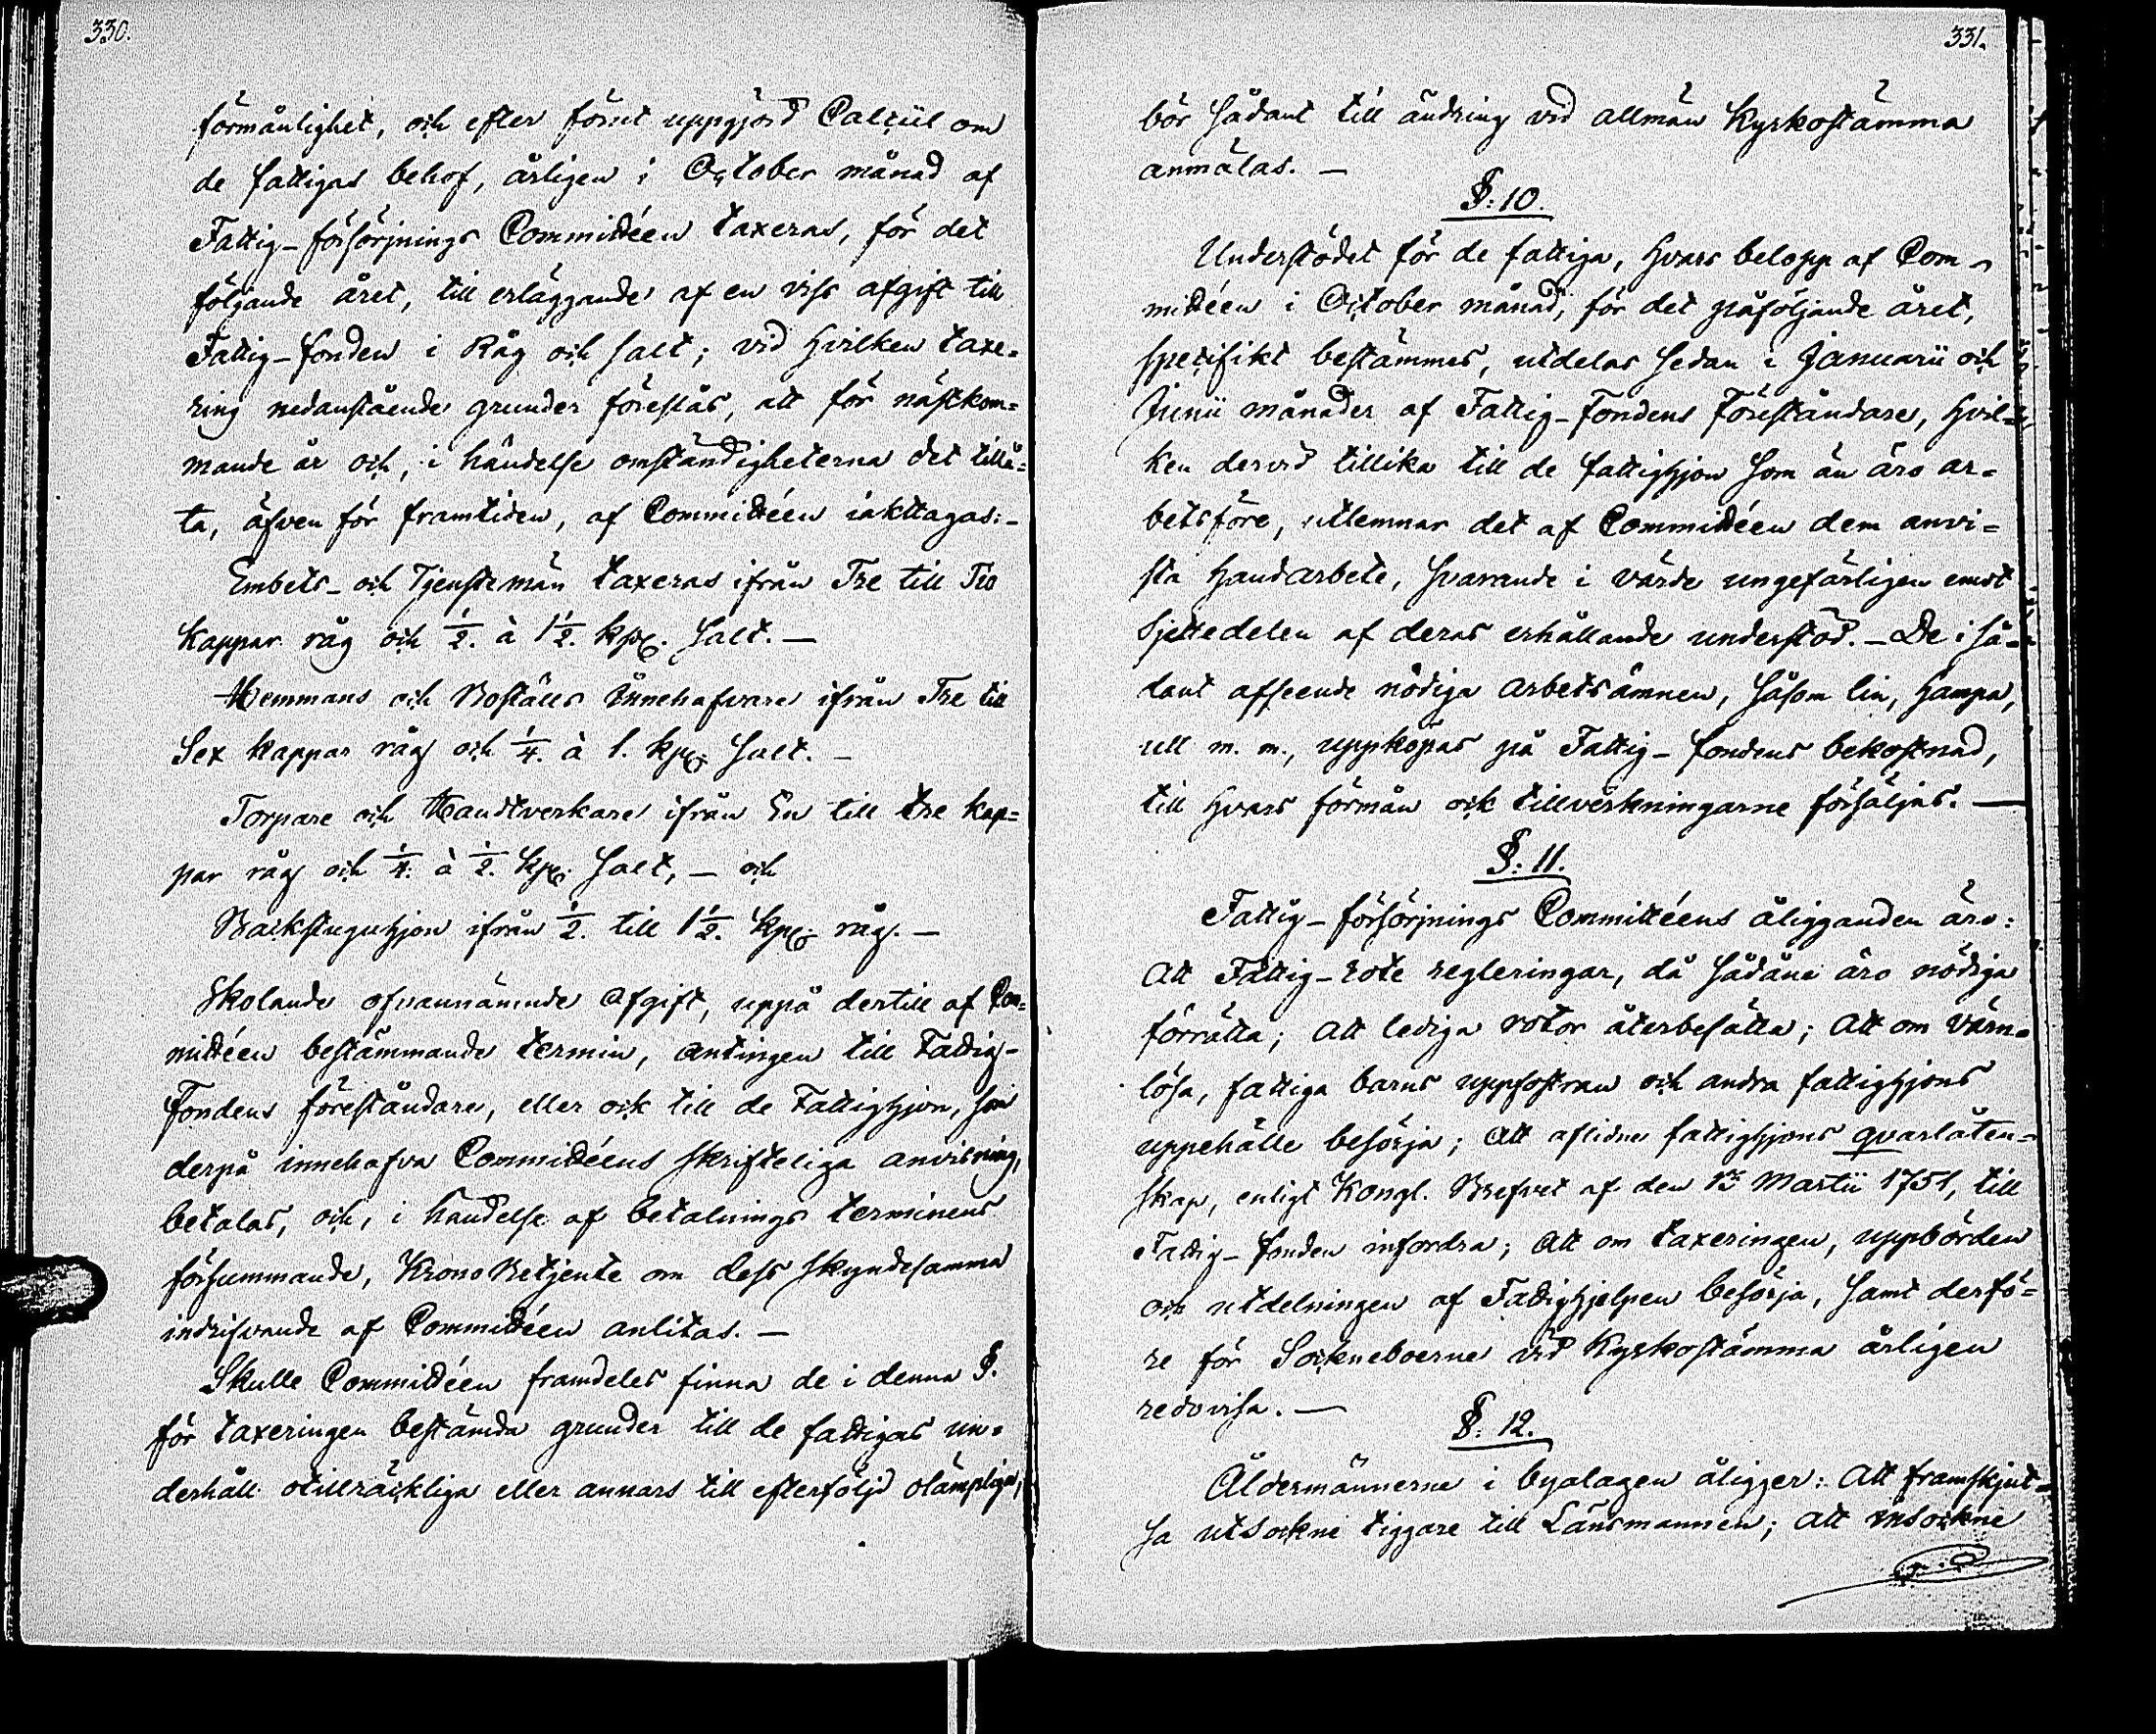 330.
förmånlighet, och efter förut uppgjord Calcül om
de fattigas behof, årligen i October månad af
Fattig-försörjnings Committéen taxeras, för det
följande året, till erläggande af en viss afgift till
Fattig-fonden i Råg och Salt; vid hvilken taxe=
ring nedanstående grunder föreslås, att för nästkom=
mande år och, i händelse omständigheterna det tillå=
ta, äfven för framtiden, af Committéen iakttagas:-
Embets- och Tjenstemän taxeras ifrån Tre till Tio
Kappar råg och 1/2. à 1 1/2. kpr. Salt. —
Hemmans och Boställs Innehafvare ifrån Tre till
Sex kappar råg och 1/4. à 1. kpr. Salt. —
Torpare och Handtverkare ifrån En till tre kap=
par råg och 1/4. à 1/2. kpr. Salt, — och
Backstuguhjon ifrån 1/2. till 1 1/2. kpr. råg. —
Skolande ofvannämnde Afgift, uppå dertill af Com=
mittéen bestämmande termin, antingen till Fattig-
Fondens föreståndare, eller ock till de Fattighjon, som
derpå innehafva Committéens skrifteliga anvisning,
betalas, och, i händelse af betalnings terminens
försummande, Krono Betjente om dess skyndesamma
indrifvande af Committéen anlitas. —
Skulle Committéen framdeles finna de i denna §.
för taxeringen bestämda grunder till de fattigas un=
derhåll otillräckliga eller annars till efterföljd olämpliga,
331.
bör sådant till ändring vid allmän Kyrkostämma
anmälas. —
§: 10.
Understödet för de fattiga, hvars belopp af Com-
mittéen i October månad, för det påföljande året,
specifikt bestämmes, utdelas sedan i Januarii och
Junii månader af Fattig-Fondens Föreståndare, hvil=
ken dervid tillika till de fattighjon som än äro ar=
betsföre, utlemnar det af Committéen dem anvi=
sta Handarbete, svarande i värde ungefärligen emot
Sjettedelen af deras erhållande understöd. — De i så=
dant afseende nödiga arbetsämnen, såsom lin, hampa,
ull m. m., uppköpas på Fattig-fondens bekostnad,
till hvars förmån ock tillverkningarne försäljas. —
§: 11.
Fattig-försörjnings Committéens åligganden äro:
Att Fattig-rote regleringar, då sådane äro nödiga
förrätta; Att lediga rotor återbesätta; Att om värn=
lösa, fattiga barns uppfostran och andra fattighjons
uppehälle besörja; Att aflidne fattighjons qvarlåten=
skap, enligt Kongl. Brefvet af den Martii 1751, till
Fattig-fonden infordra; Att om taxeringen, uppbörden
och utdelningen af Fattighjelpen besörja, samt derfö=
re för Sockneboerne vid Kyrkostämma årligen
redovisa. —
§: 12.
Åldermännerne i byalagen åligger: Att framskjut=
sa utsockne tiggare till Länsmannen; att insockne